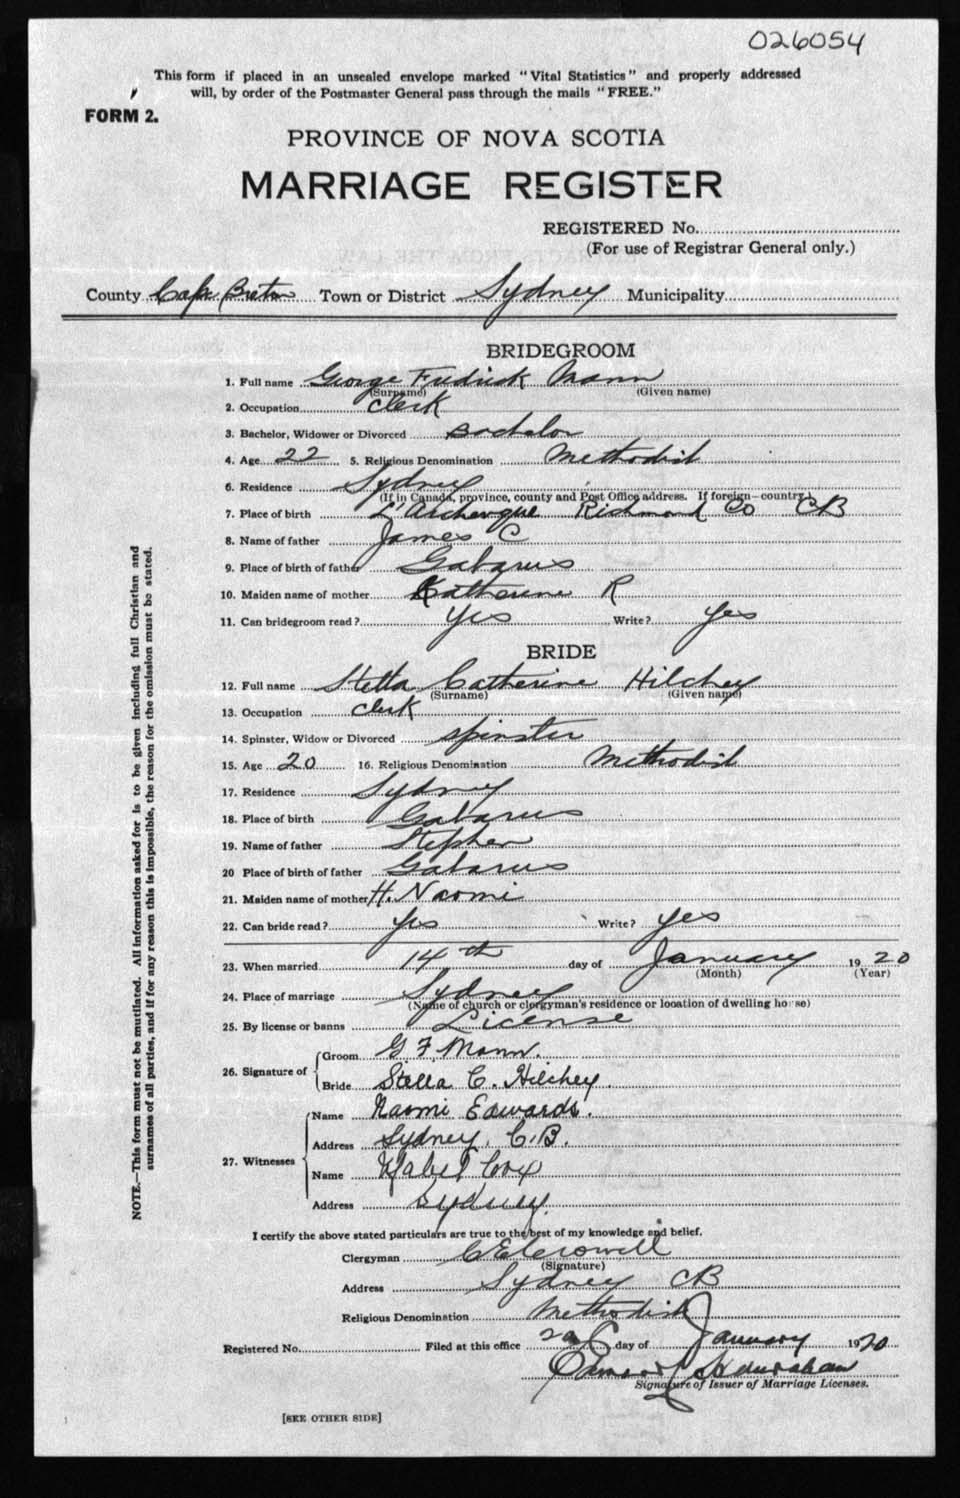 026054
This form if placed in an unsealed envelope marked "Vital Statistics" and properly addressed
will, by order of the Postmaster General pass through the mails "FREE."
FORM 2.
PROVINCE OF NOVA SCOTIA
MARRIAGE REGISTER
REGISTERED No.
(For use of Registrar General only.)
County Cape Breton Town or District Sydney Municipality
BRIDEGROOM
1. Full name George Fredrick Mann
(Surname) (Given name)
2. Occupation clerk
3. Bachelor, Widower or Divorced Bachelor
4. Age 22 5. Religious Denomination Methodist
6. Residence Sydney
(If in Canada, province, county and Post Office address. If foreign—country.)
7. Place of birth L'Archeveque Richmond Co CB
8. Name of father James C
9. Place of birth of father Gabarus
10. Maiden name of mother Katherine R
11. Can bridegroom read? Yes Write? Yes
BRIDE
12. Full name Stella Catherine Hilchey
(Surname) (Given name)
13. Occupation clerk
14. Spinster, Widow or Divorced spinster
15. Age 20 16. Religious Denomination Methodist
17. Residence Sydney
18. Place of birth Gabarus
19. Name of father Stephen
20 Place of birth of father Gabarus
21. Maiden name of mother H. Naomi
22. Can bride read? Yes Write? Yes
23. When married 14th day of January 1920
(Month) (Year)
24. Place of marriage Sydney
(Name of church or clergyman's residence or location of dwelling house)
25. By license or banns License
26. Signature of
Groom G F Mann.
Bride Stella C. Hilchey.
27. Witnesses
Name Naomi Edwards.
Address Sydney, C.B.
Name Mabel Cox
Address Sydney.
I certify the above stated particulars are true to the best of my knowledge and belief.
Clergyman C E Crowell
(Signature)
Address Sydney CB
Religious Denomination Methodist
Registered No. Filed at this office day of January 1920
Signature of Issuer of Marriage Licenses.
[SEE OTHER SIDE]
NOTE.—This form must not be mutilated. All information asked for is to be given including full Christian and
surnames of all parties, and if for any reason this is impossible, the reason for the omission must be stated.